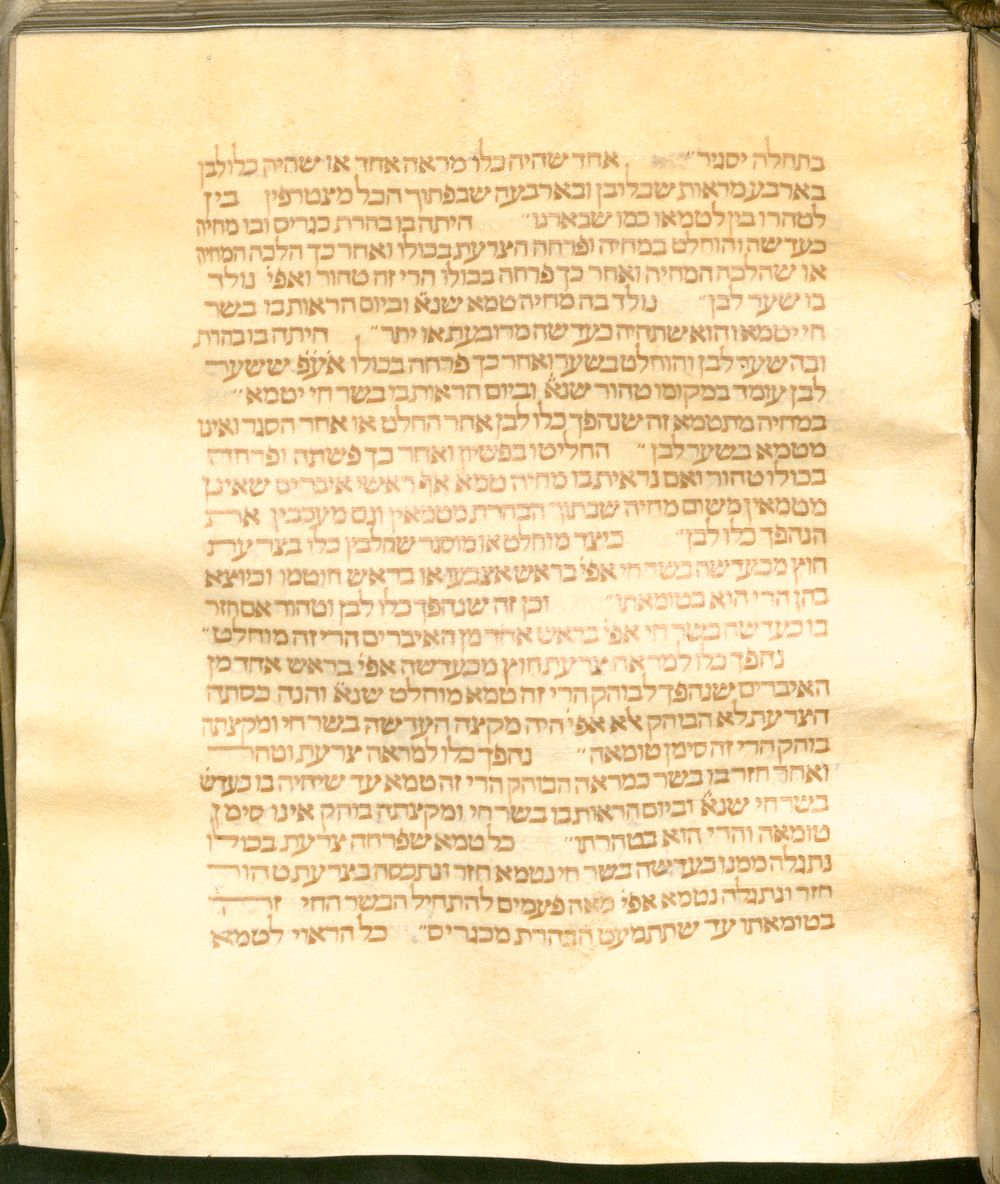 בתחלה יסגיר״ אחד שהיה כלו מראה אחד או שהיה כלו לבן
בארבע מראות שבלובן ובארבעה שבפתוך הכל מצטרפין בין
לטהרו בין לטמאו כמו שבארנו״ היתה בו בהרת כגריס ובו מחיה
כעדשה והוחלט במחיה ופרחה הצרעת בכולו ואחר כך הלכה המחיה
או שהלכה המחיה ואחר כך פרחה בכולו הרי זה טהור ואפי׳ נולד
בו שער לבן״ נולד בה מחיה טמא שנא׳ וביום הראות בו בשר
חי יטמא והוא שתהיה כעדשה מרובעת או יתר״ היתה בו בהרת
ובה שער לבן והוחלט בשער ואחר כך פרחה בכולו אע״פ ששער
לבן עומד במקומו טהור שנא׳ וביום הראות בו בשר חי יטמא״
במחיה מתטמא זה שנהפך כלו לבן אחר החלט או אחר הסגר ואינו
מטמא בשער לבן״ החליטו בפשיון ואחר כך פשתה ופרחה
בכולו טהור ואם נראית בו מחיה טמא אף ראשי איברים שאינן
מטמאין משום מחיה שבתוך הבהרת מטמאין וגם מעכבין את
הנהפך כלו לבן״ כיצד מוחלט או מוסגר שהלבין כלו בצרעת
חוץ מכעדשה בשר חי אפי׳ בראש אצבעו או בראש חוטמו וכיוצא
בהן הרי הוא בטומאתו״ וכן זה שנהפך כלו לבן וטהור אם חזר
בו כעדשה בשר חי אפי׳ בראש אחד מן האיברים הרי זה מוחלט״
נהפך כלו למראה צרעת חוץ מכעדשה אפי׳ בראש אחד מן
האיברים שנהפך לבוהק הרי זה טמא מוחלט שנא׳ והנה כסתה
הצרעת לא הבוהק לא אפי׳ היה מקצת העדשה בשר חי ומקצתה
בוהק הרי זה סימן טומאה״ נהפך כלו למראה צרעת וטהר
ואחר חזר בו בשר כמראה הבוהק הרי זה טמא עד שיחיה בו כעדש
בשר חי שנא׳ וביום הראות בו בשר חי ומקצתה בוהק אינו סימן
טומאה והרי הוא בטהרתו״ כל טמא שפרחה צרעת בכולו
נתגלה ממנו כעדשה בשר חי נטמא חזר ונתכסה בצרעת טהור
חזר ונתגלה נטמא אפי׳ מאה פעמים להתחיל הבשר החי זה
בטומאתו עד שתתמעט הבהרת מכגריס״ כל הראוי לטמא